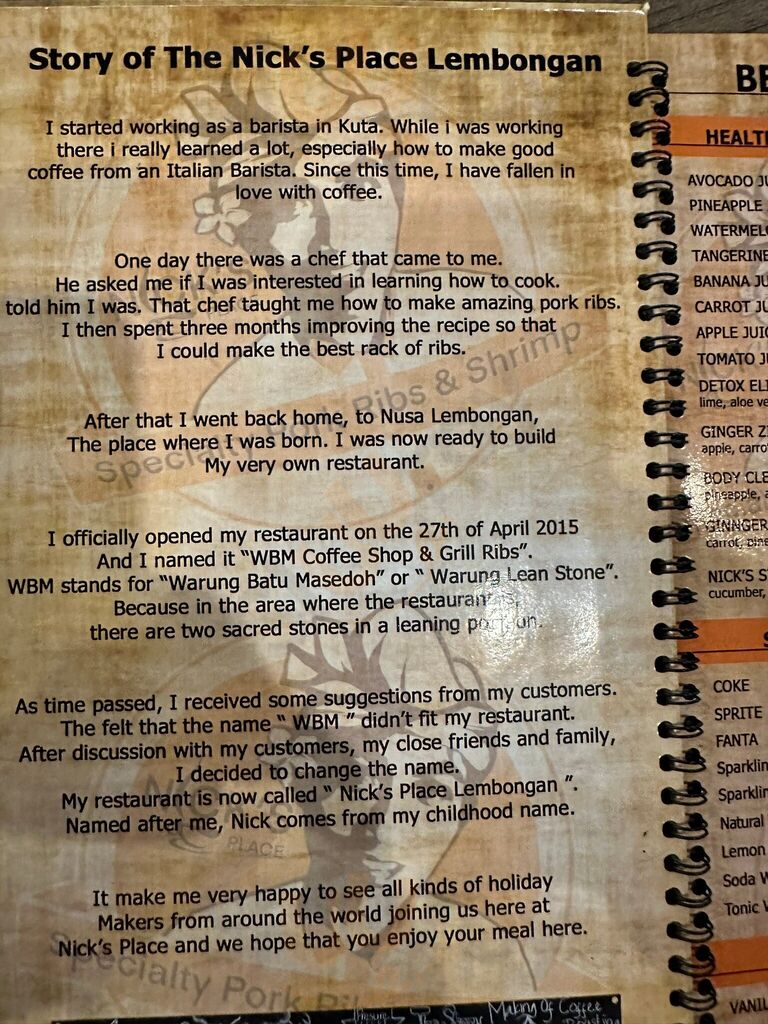 Story of The Nick's Place Lembongan
I started working as a barista in Kuta. While i was working
there i really learned a lot, especially how to make good
coffee from an Italian Barista. Since this time, I have fallen in
love with coffee.
One day there was a chef that came to me.
He asked me if I was interested in learning how to cook.
told him I was. That chef taught me how to make amazing pork ribs.
I then spent three months improving the recipe so that
I could make the best rack of ribs.
After that I went back home, to Nusa Lembongan,
The place where I was born. I was now ready to build
My very own restaurant.
I officially opened my restaurant on the 27th of April 2015
And I named it "WBM Coffee Shop & Grill Ribs".
WBM stands for "Warung Batu Masedoh" or " Warung Lean Stone".
Because in the area where the restaurant is,
there are two sacred stones in a leaning
As time passed, I received some suggestions from my customers.
The felt that the name " WBM " didn't fit my restaurant.
After discussion with my customers, my close friends and family,
I decided to change the name.
My restaurant is now called " Nick's Place Lembongan ".
Named after me, Nick comes from my childhood name.
It make me very happy to see all kinds of holiday
Makers from around the world joining us here at
Nick's Place and we hope that you enjoy your meal here.
Ribs & Shrimp
PLACE
Specialty Pork
Making Of Coffee
AVOCADO
PINEAPPLE
TANGERINE
BANANA
CARROT
APPLE
TOMATO
DETOX
lime, aloe
GINGER
apple,
BODY
NICK'S
cucumber,
COKE
SPRITE
FANTA
Natural
Lemon
Soda
Tonic